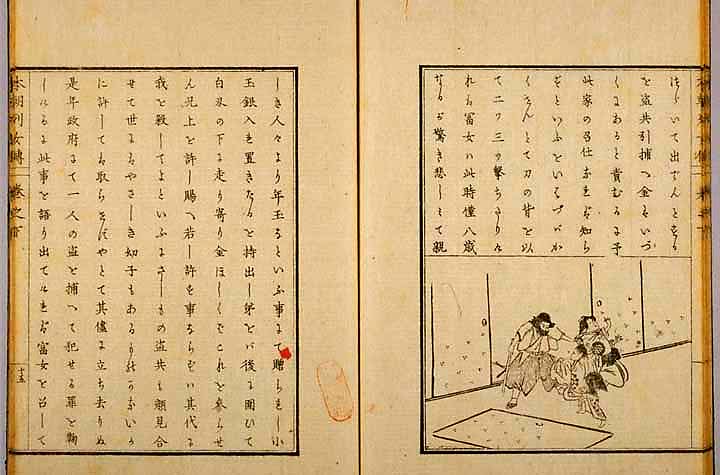 を盗共引捕へ金はいづ
くにあると責むるに予
此家の召仕なれば知ら
ずといふを
くせんとて刀の背を以
て二ツ三ツ撃ちたりけ
れば冨女ハ此時僅八歳
なるが驚き悲しミて親
しき人々より年玉なるといふ事にて贈られし小
玉銀入を置きたるを持出し弟をバ後に囲ひて
白刃の下に走り寄り金ほしくバこれを参らせ
ん兄上を許し賜へ若し許す事ならずバ其代に
我を殺してよといふにさしもの盗共も顔見合
せて世にもやさしき幼子もあるものかないか
に許しても取らせばやとて其儘に立ち去りぬ
是年政府にて一人の盗を捕へて犯せる罪を鞠
しけるに此事を語り出てけれバ富女を召して
本朝列女傳 巻之下 十五